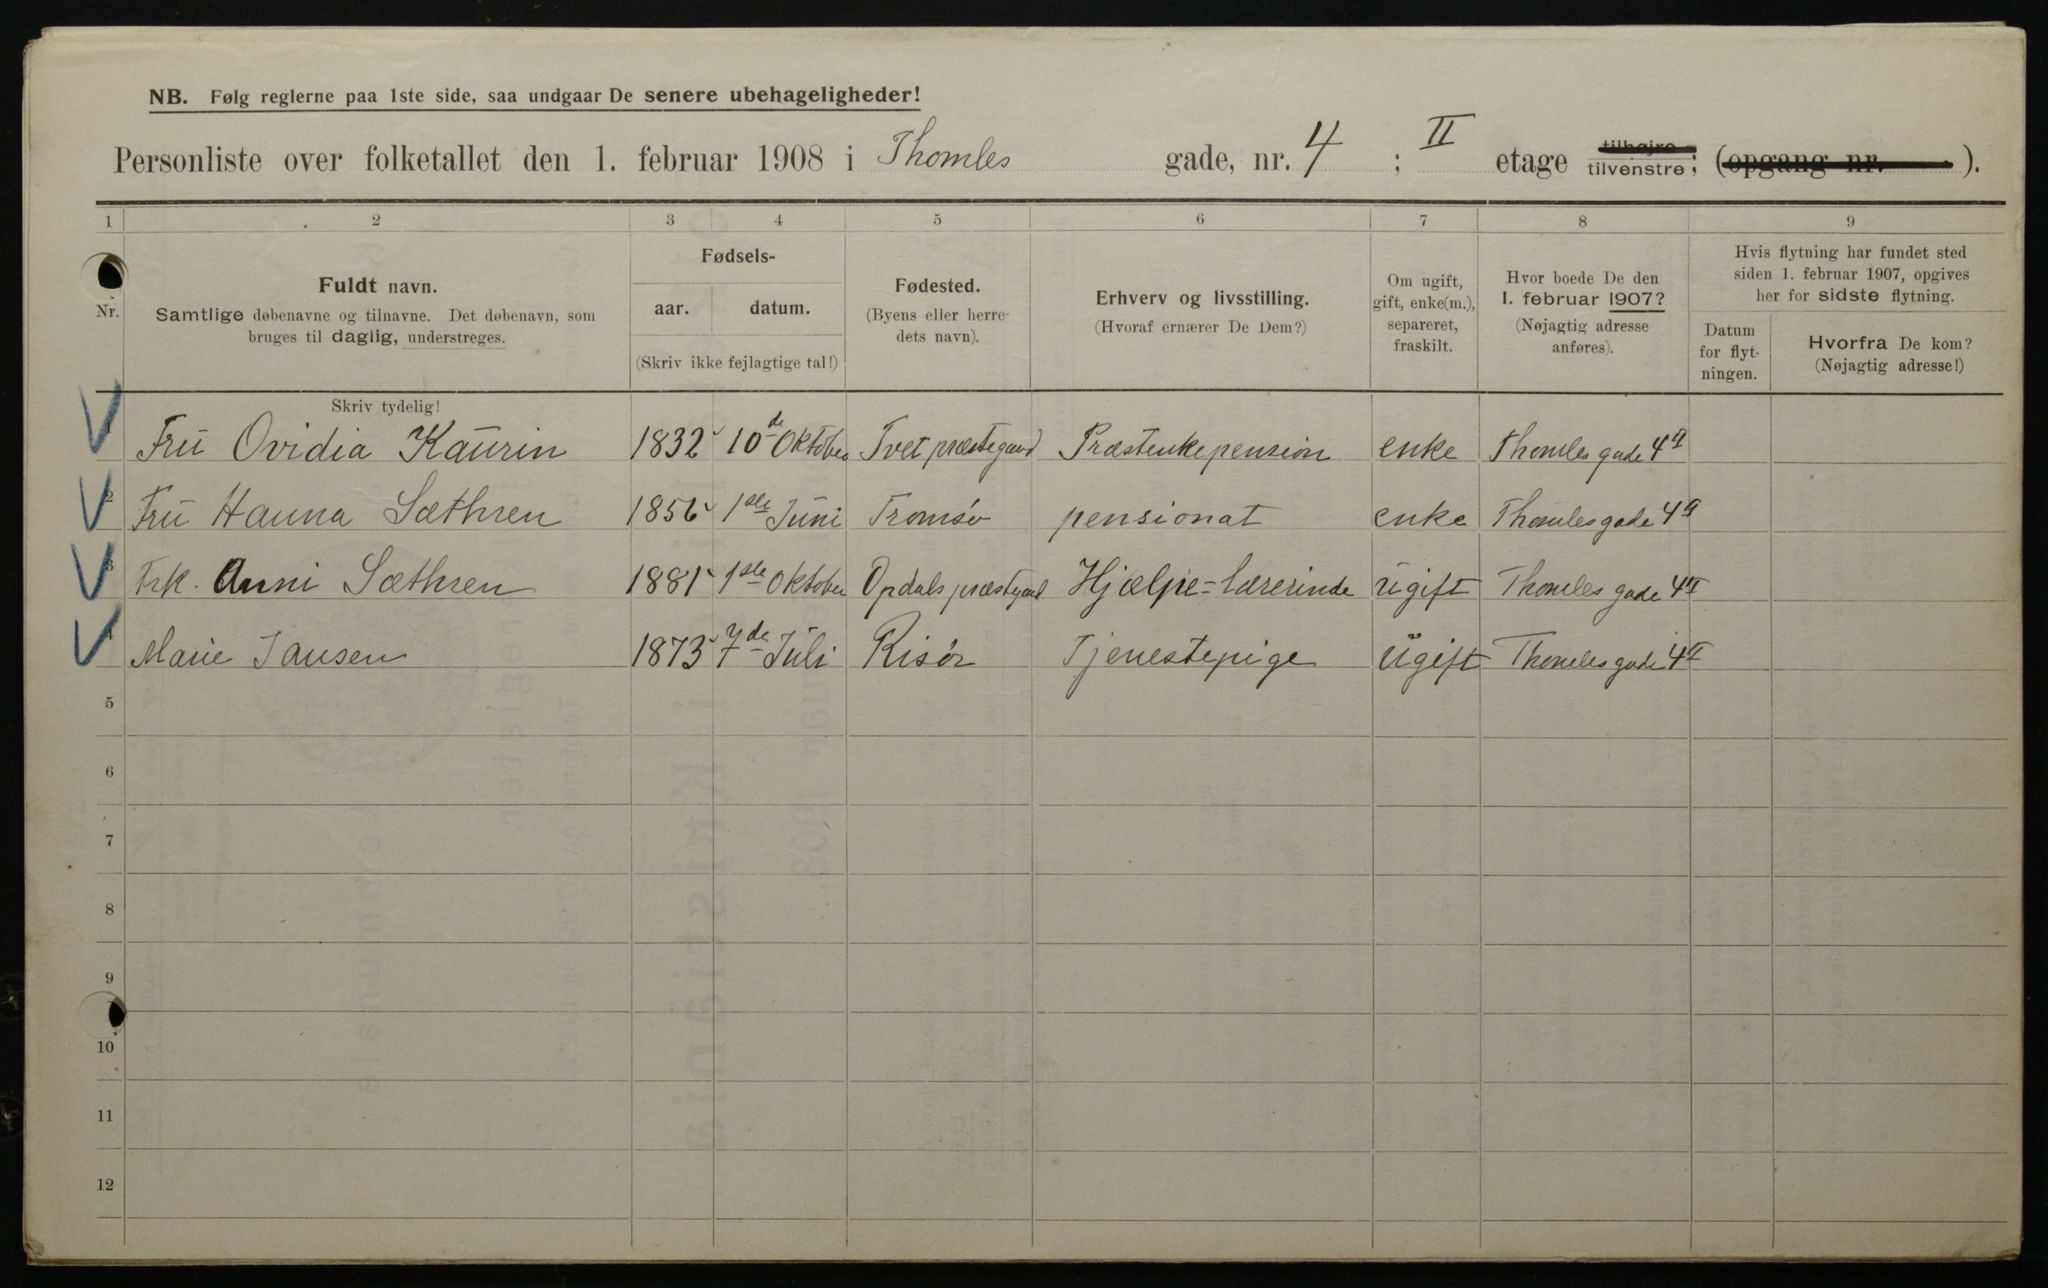 NB. Følg reglerne paa 1ste side, saa undgaar De senere ubehageligheder!
Personliste over folketallet den 1. februar 1908 i Thomles gade, nr. 4 ; II etage tilhøjre tilvenstre; (opgang nr. ).
1 2 3 4 5 6 7 8 9
Nr.
Fuldt navn.
Samtlige døbenavne og tilnavne. Det døbenavn, som
bruges til daglig, understreges.
Fødsels-
aar. datum.
(Skriv ikke fejlagtige tal!)
Fødested.
(Byens eller herre-
dets navn).
Erhverv og livsstilling.
(Hvoraf ernærer De Dem?)
Om ugift,
gift, enke(m.),
separeret,
fraskilt.
Hvor boede De den
1. februar 1907?
(Nøjagtig adresse
anføres).
Hvis flytning har fundet sted
siden 1. februar 1907, opgives
her for sidste flytning.
Datum
for flyt-
ningen.
Hvorfra De kom?
(Nøjagtig adresse!)
Skriv tydelig!
1 Fru Ovidia Kaurin 1832 10de Oktober Tvet præstegaard Præstenkepension enke Thomles gade 4
2 Fru Hanna Sæthren 1856 1ste Juni Tromsø pensionat enke Thomlesgade 4
3 Frk. Anni Sæthren 1881 1ste Oktober Opdals præstegaard Hjælpe=lærerinde ugift Thomles gade 4II
4 Marie Jansen 1873 7de Juli Risør Tjenestepige ugift Thomlesgade 4II
5
6
7
8
9
10
11
12